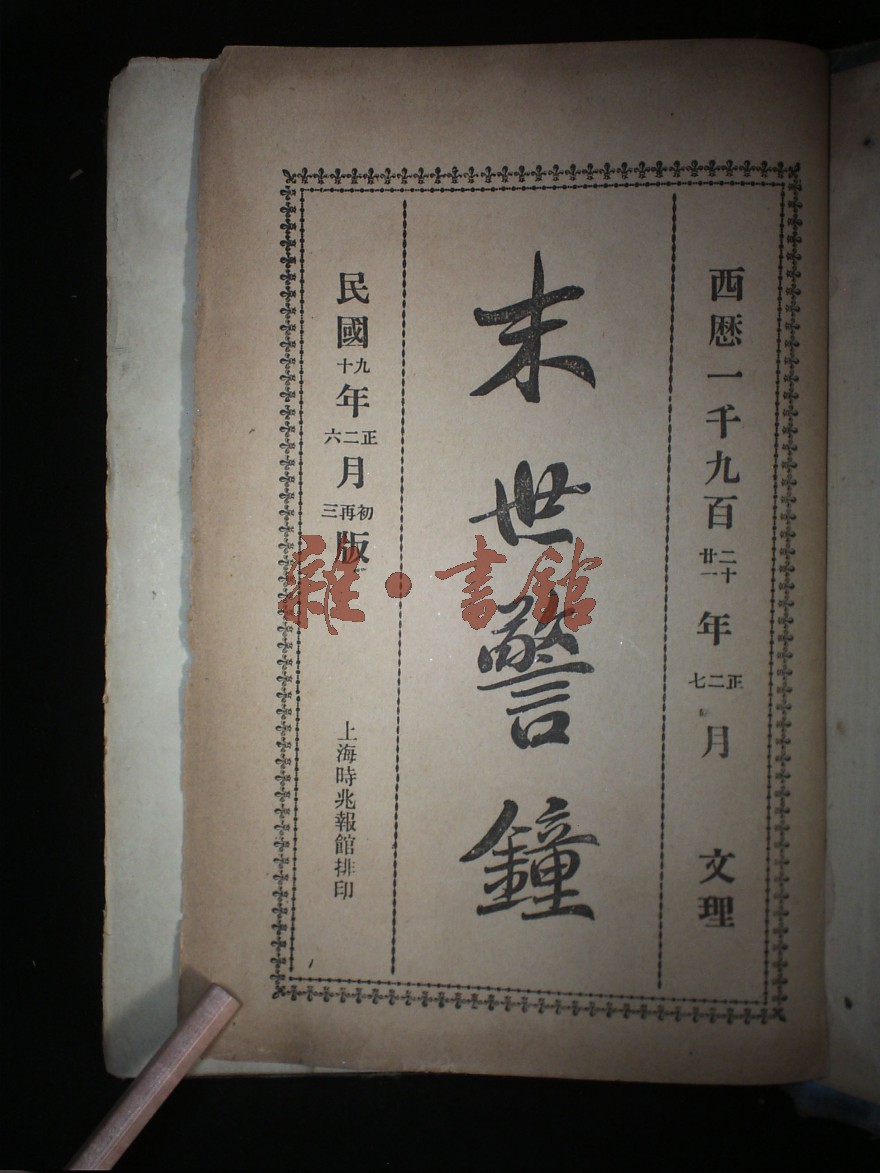 西曆一千九百二十廿一年正二七月 文理
末世警鐘
民國九十年正二六月初再三版
上海時兆報館排印
雜·書館